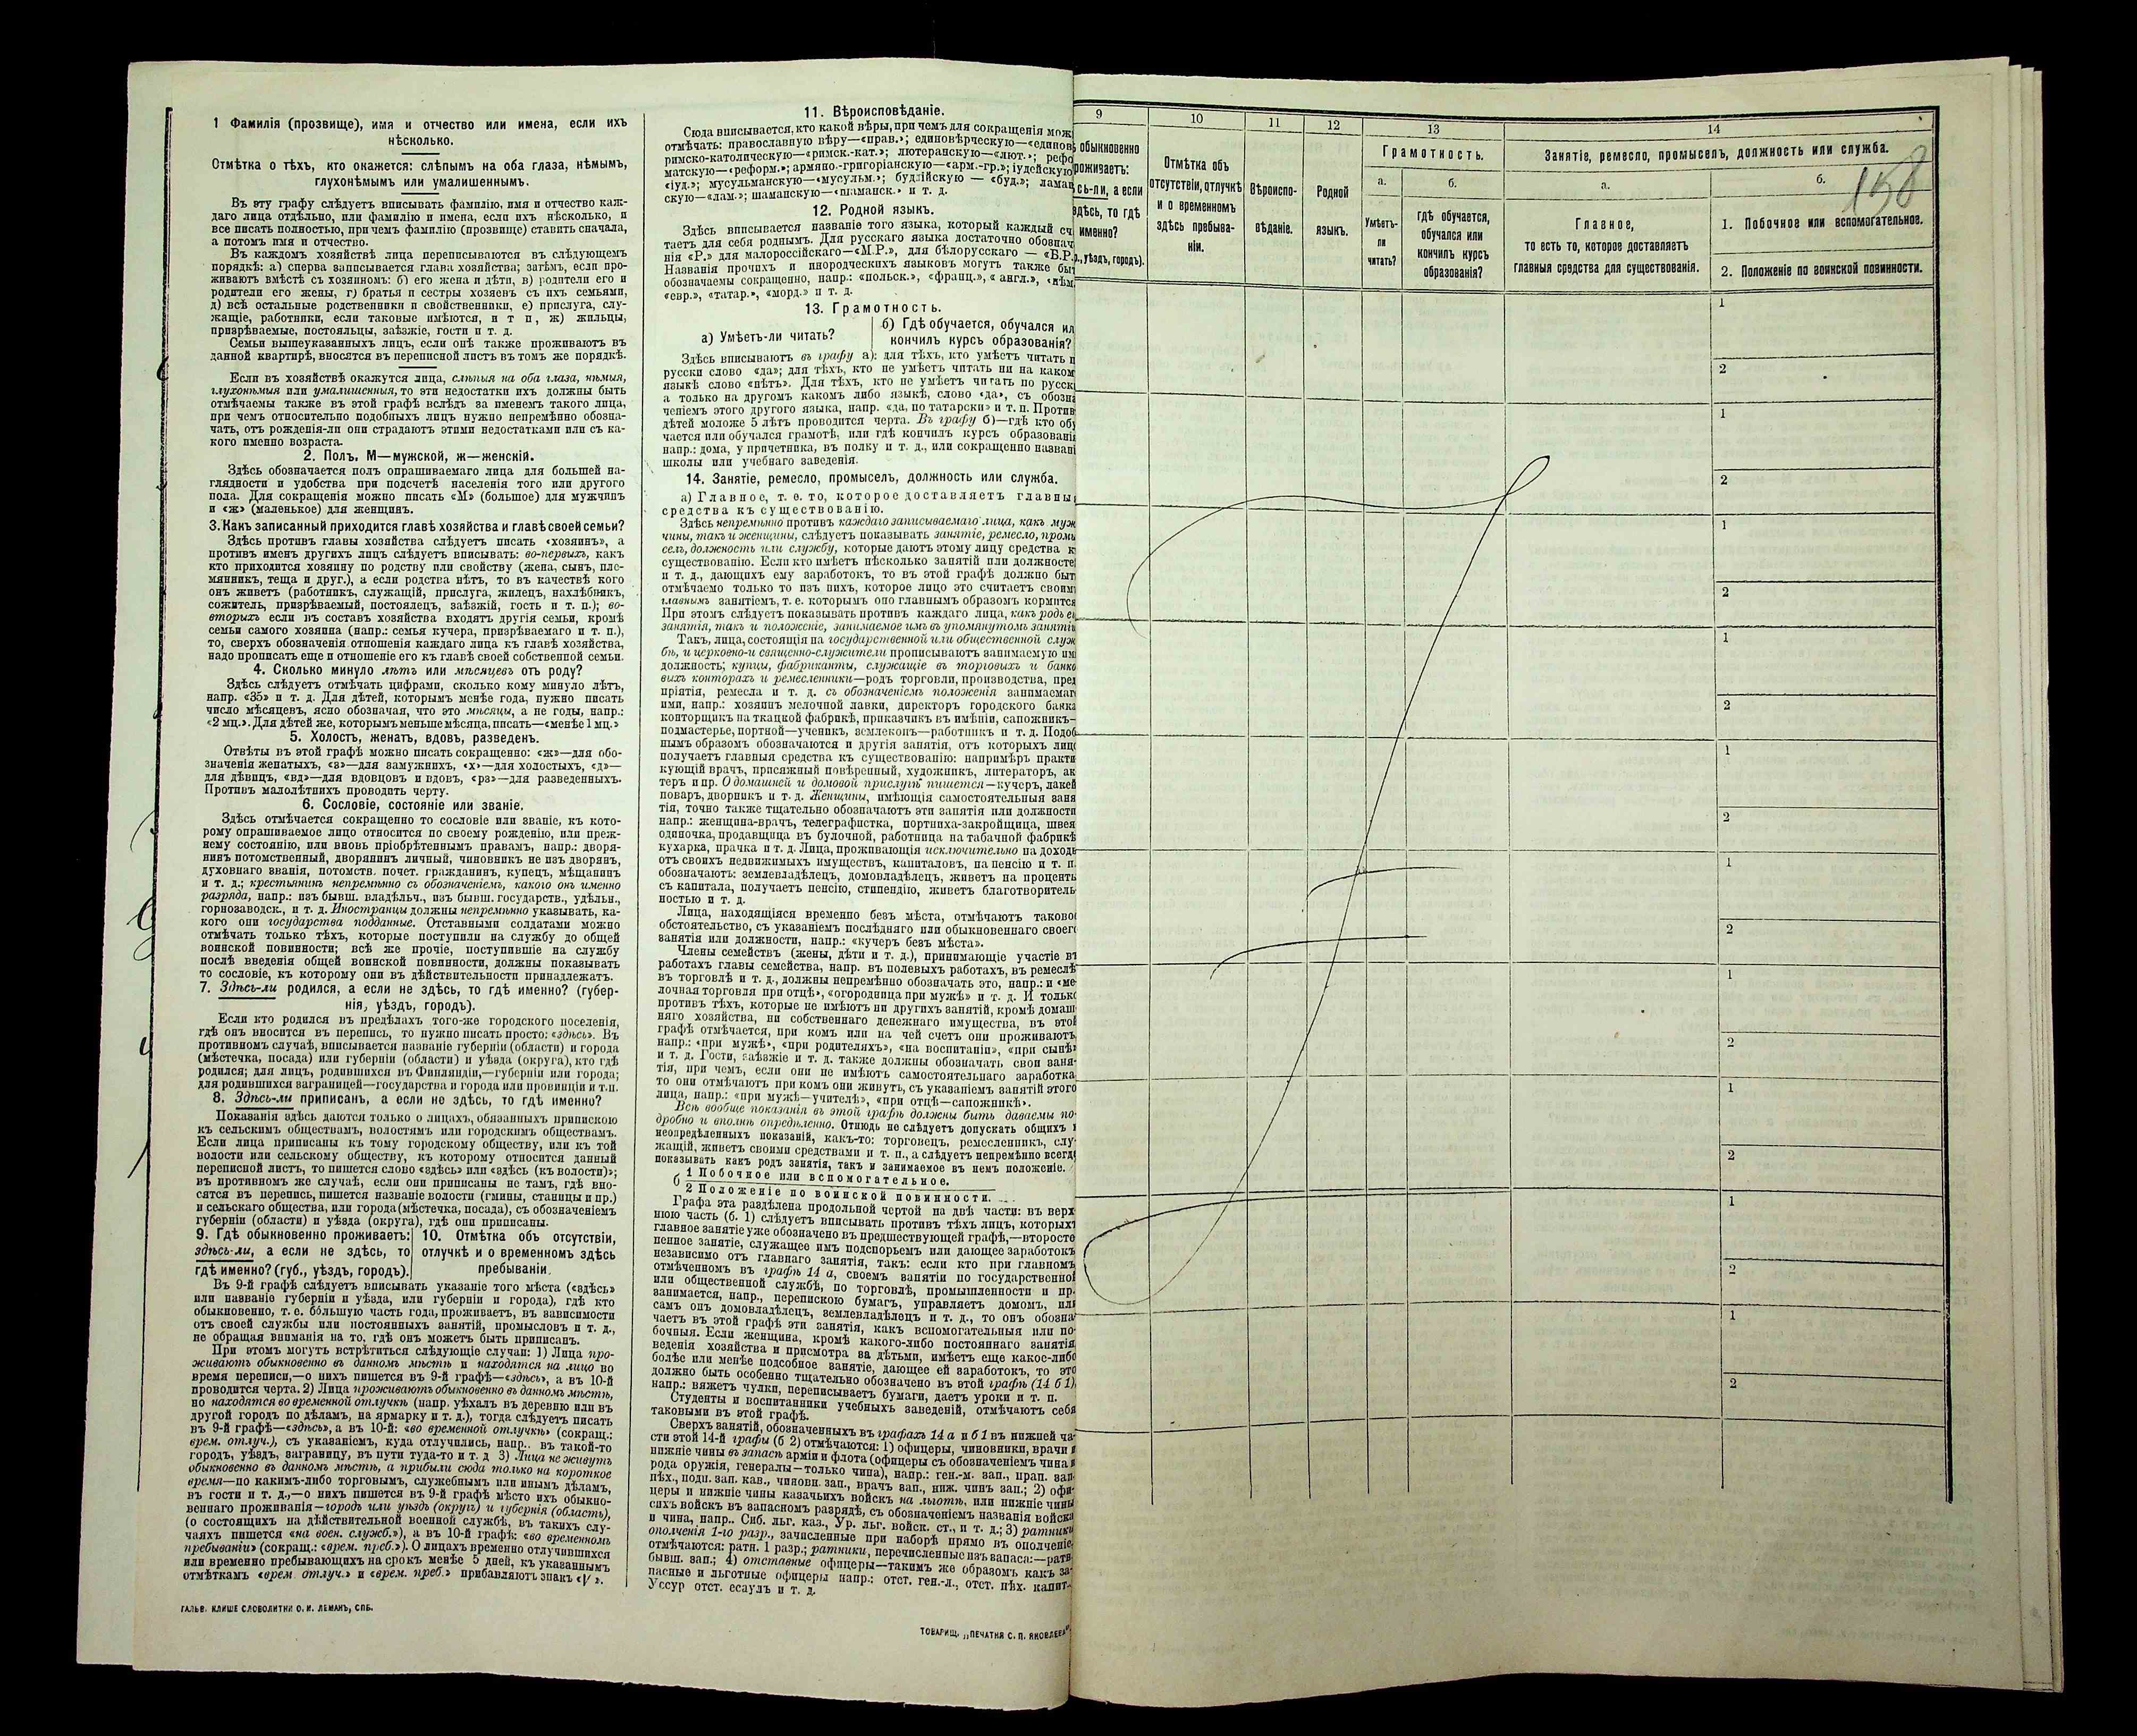 1 Фамилія (прозвище), имя и отчество или имена, если ихъ
нѣсколько.
Отмѣтка о тѣхъ, кто окажется: слѣпымъ на оба глаза, нѣмымъ,
глухонѣмымъ или умалишеннымъ.
Въ эту графу слѣдуетъ вписывать фамилію, имя и отчество каж-
даго лица отдѣльно, или фамилію и имена, если ихъ нѣсколько, и
все писать полностью, при чемъ фамилію (прозвище) ставить сначала,
а потомъ имя и отчество.
Въ каждомъ хозяйствѣ лица переписываются въ слѣдующемъ
порядкѣ: а) сперва записывается глава хозяйства; затѣмъ, если про-
живаютъ вмѣстѣ съ хозяиномъ: б) его жена и дѣти, в) родители его и
родители его жены, г) братья и сестры хозяевъ съ ихъ семьями,
д) всѣ остальные родственники и свойственники, е) прислуга, слу-
жащіе, работники, если таковые имѣются, и т п, ж) жильцы,
призрѣваемые, постояльцы, заѣзжіе, гости и т. д.
Семьи вышеуказанныхъ лицъ, если онѣ также проживаютъ въ
данной квартирѣ, вносятся въ переписной листъ въ томъ же порядкѣ.
Если въ хозяйствѣ окажутся лица, слѣпыя на оба глаза, нѣмыя,
глухонѣмыя или умалишенныя, то эти недостатки ихъ должны быть
отмѣчаемы также въ этой графѣ вслѣдъ за именемъ такого лица,
при чемъ относительно подобныхъ лицъ нужно непремѣнно обозна-
чать, отъ рожденія-ли они страдаютъ этими недостатками или съ ка-
кого именно возраста.
2. Полъ, М—мужской, ж—женскій.
Здѣсь обозначается полъ опрашиваемаго лица для большей на-
глядности и удобства при подсчетѣ населенія того или другого
пола. Для сокращенія можно писать «М» (большое) для мужчинъ
и «ж» (маленькое) для женщинъ.
3. Какъ записанный приходится главѣ хозяйства и главѣ своей семьи?
Здѣсь противъ главы хозяйства слѣдуетъ писать «хозяинъ», а
противъ именъ другихъ лицъ слѣдуетъ вписывать: во-первыхъ, какъ
кто приходится хозяину по родству или свойству (жена, сынъ, пле-
мянникъ, теща и друг.), а если родства нѣтъ, то въ качествѣ кого
онъ живетъ (работникъ, служащій, прислуга, жилецъ, нахлѣбникъ,
сожитель, призрѣваемый, постоялецъ, заѣзжій, гость и т. п.); во-
вторыхъ если въ составъ хозяйства входятъ другія семьи, кромѣ
семьи самого хозяина (напр.: семья кучера, призрѣваемаго и т. п.),
то, сверхъ обозначенія отношенія каждаго лица къ главѣ хозяйства,
надо прописать еще и отношеніе его къ главѣ своей собственной семьи.
4. Сколько минуло лѣтъ или мѣсяцевъ отъ роду?
Здѣсь слѣдуетъ отмѣчать цифрами, сколько кому минуло лѣтъ,
напр. «35» и т. д. Для дѣтей, которымъ менѣе года, нужно писать
число мѣсяцевъ, ясно обозначая, что это мѣсяцы, а не годы, напр.:
«2 мц.». Для дѣтей же, которымъ меньше мѣсяца, писать—«менѣе 1 мц.»
5. Холостъ, женатъ, вдовъ, разведенъ.
Отвѣты въ этой графѣ можно писать сокращенно: «ж»—для обо-
значенія женатыхъ, «з»—для замужнихъ, «х»—для холостыхъ, «д»—
для дѣвицъ, «вд»—для вдовцовъ и вдовъ, «рз»—для разведенныхъ.
Противъ малолѣтнихъ проводить черту.
6. Сословіе, состояніе или званіе.
Здѣсь отмѣчается сокращенно то сословіе или званіе, къ кото-
рому опрашиваемое лицо относится по своему рожденію, или преж-
нему состоянію, или вновь пріобрѣтеннымъ правамъ, напр.: дворя-
нинъ потомственный, дворянинъ личный, чиновникъ не изъ дворянъ,
духовнаго званія, потомств. почет. гражданинъ, купецъ, мѣщанинъ
и т. д.; крестьянинъ непремѣнно съ обозначеніемъ, какого онъ именно
разряда, напр.: изъ бывш. владѣльч., изъ бывш. государств., удѣльн.,
горнозаводск., и т. д. Иностранцы должны непремѣнно указывать, ка-
кого они государства подданные. Отставными солдатами можно
отмѣчать только тѣхъ, которые поступили на службу до общей
воинской повинности; всѣ же прочіе, поступившіе на службу
послѣ введенія общей воинской повинности, должны показывать
то сословіе, къ которому они въ дѣйствительности принадлежатъ.
7. Здѣсь-ли родился, а если не здѣсь, то гдѣ именно? (губер-
нія, уѣздъ, городъ).
Если кто родился въ предѣлахъ того-же городского поселенія,
гдѣ онъ вносится въ перепись, то нужно писать просто: «здѣсь». Въ
противномъ случаѣ, вписывается названіе губерніи (области) и города
(мѣстечка, посада) или губерніи (области) и уѣзда (округа), кто гдѣ
родился; для лицъ, родившихся въ Финляндіи,—губерніи или города;
для родившихся заграницей—государства и города или провинціи и т.п.
8. Здѣсь-ли приписанъ, а если не здѣсь, то гдѣ именно?
Показанія здѣсь даются только о лицахъ, обязанныхъ припискою
къ сельскимъ обществамъ, волостямъ или городскимъ обществамъ.
Если лица приписаны къ тому городскому обществу, или къ той
волости или сельскому обществу, къ которому относится данный
переписной листъ, то пишется слово «здѣсь» или «здѣсь (къ волости)»;
въ противномъ же случаѣ, если они приписаны не тамъ, гдѣ вно-
сятся въ перепись, пишется названіе волости (гмины, станицы и пр.)
и сельскаго общества, или города (мѣстечка, посада), съ обозначеніемъ
губерніи (области) и уѣзда (округа), гдѣ они приписаны.
9. Гдѣ обыкновенно проживаетъ:
здѣсь-ли, а если не здѣсь, то
гдѣ именно? (губ., уѣздъ, городъ).
10. Отмѣтка объ отсутствіи,
отлучкѣ и о временномъ здѣсь
пребываніи.
Въ 9-й графѣ слѣдуетъ вписывать указаніе того мѣста («здѣсь»
или названіе губерніи и уѣзда, или губерніи и города), гдѣ кто
обыкновенно, т. е. бо́льшую часть года, проживаетъ, въ зависимости
отъ своей службы или постоянныхъ занятій, промысловъ и т. д.,
не обращая вниманія на то, гдѣ онъ можетъ быть приписанъ.
При этомъ могутъ встрѣтиться слѣдующіе случаи: 1) Лица про-
живаютъ обыкновенно въ данномъ мѣстѣ и находятся на лицо во
время переписи,—о нихъ пишется въ 9-й графѣ—«здѣсь», а въ 10-й
проводится черта. 2) Лица проживаютъ обыкновенно въ данномъ мѣстѣ,
но находятся во временной отлучкѣ (напр. уѣхалъ въ деревню или въ
другой городъ по дѣламъ, на ярмарку и т. д.), тогда слѣдуетъ писать
въ 9-й графѣ—«здѣсь», а въ 10-й: «во временной отлучкѣ» (сокращ.:
врем. отлуч.), съ указаніемъ, куда отлучились, напр.. въ такой-то
городъ, уѣздъ, заграницу, въ пути туда-то и т. д 3) Лица не живутъ
обыкновенно въ данномъ мѣстѣ, а прибыли сюда только на короткое
время—по какимъ-либо торговымъ, служебнымъ или инымъ дѣламъ,
въ гости и т. д.,—о нихъ пишется въ 9-й графѣ мѣсто ихъ обыкно-
веннаго проживанія—городъ или уѣздъ (округъ) и губернія (область),
(о состоящихъ на дѣйствительной военной службѣ, въ такихъ слу-
чаяхъ пишется «на воен. служб.»), а въ 10-й графѣ: «во временномъ
пребываніи» (сокращ.: «врем. преб.»). О лицахъ временно отлучившихся
или временно пребывающихъ на срокъ менѣе 5 дней, къ указаннымъ
отмѣткамъ «врем. отлуч.» и «врем. преб.» прибавляютъ знакъ «V».
ГАЛЬВ. КЛИШЕ СЛОВОЛИТНИ О. И. ЛЕМАНЪ, СПБ.
11. Вѣроисповѣданіе.
Сюда вписывается, кто какой вѣры, при чемъ для сокращенія мож
отмѣчать: православную вѣру—«прав.»; единовѣрческую—«единов
римско-католическую—«римск.-кат.»; лютеранскую—«лют.»; рефо
матскую—«реформ.»; армяно.-григоріанскую—«арм.-гр.»; іудейскую
«іуд.»; мусульманскую—«мусульм.»; буддійскую — «буд.»; ламаи
скую—«лам.»; шаманскую—«шаманск.» и т. д.
12. Родной языкъ.
Здѣсь вписывается названіе того языка, который каждый сч
таетъ для себя роднымъ. Для русскаго языка достаточно обознач
нія «Р.» для малороссійскаго—«М.Р.», для бѣлорусскаго — «Б.Р.
Названія прочихъ и инородческихъ языковъ могутъ также бы
обозначаемы сокращенно, напр.: «польск.», «франц.», « англ.», «нѣм
«евр.», «татар.», «морд.» и т. д.
13. Грамотность.
а) Умѣетъ-ли читать?
б) Гдѣ обучается, обучался ил
кончилъ курсъ образованія?
Здѣсь вписываютъ въ графу а): для тѣхъ, кто умѣетъ читать п
русски слово «да»; для тѣхъ, кто не умѣетъ читать ни на каком
языкѣ слово «нѣтъ». Для тѣхъ, кто не умѣетъ читать по русск
а только на другомъ какомъ либо языкѣ, слово «да», съ обозна
ченіемъ этого другого языка, напр. «да, по татарски» и т. п. Против
дѣтей моложе 5 лѣтъ проводится черта. Въ графу б)—гдѣ кто обу
чается или обучался грамотѣ, или гдѣ кончилъ курсъ образовані
напр.: дома, у причетника, въ полку и т. д., или сокращенно названі
школы или учебнаго заведенія.
14. Занятіе, ремесло, промыселъ, должность или служба.
а) Главное, т. е. то, которое доставляетъ главны
средства къ существованію.
Здѣсь непремѣнно противъ каждаго записываемаго лица, какъ муж
чины, такъ и женщины, слѣдуетъ показывать занятіе, ремесло, промы
селъ, должность или службу, которые даютъ этому лицу средства к
существованію. Если кто имѣетъ нѣсколько занятій или должносте
и т. д., дающихъ ему заработокъ, то въ этой графѣ должно быт
отмѣчаемо только то изъ нихъ, которое лицо это считаетъ своим
главнымъ занятіемъ, т. е. которымъ оно главнымъ образомъ кормится
При этомъ слѣдуетъ показывать противъ каждаго лица, какъ родъ ег
занятія, такъ и положеніе, занимаемое имъ въ упомянутомъ занятіи
Такъ, лица, состоящія на государственной или общественной служ
бѣ, и церковно-и священно-служители прописываютъ занимаемую им
должность; купцы, фабриканты, служащіе въ торговыхъ и банко
выхъ конторахъ и ремесленники—родъ торговли, производства, пред
пріятія, ремесла и т. д. съ обозначеніемъ положенія занимаемаг
ими, напр.: хозяинъ мелочной лавки, директоръ городского банка
конторщикъ на ткацкой фабрикѣ, приказчикъ въ имѣніи, сапожникъ—
подмастерье, портной—ученикъ, землекопъ—работникъ и т. д. Подоб
нымъ образомъ обозначаются и другія занятія, отъ которыхъ лиц
получаетъ главныя средства къ существованію: напримѣръ практи
кующій врачъ, присяжный повѣренный, художникъ, литераторъ, ак
теръ и пр. О домашней и домовой прислугѣ пишется—кучеръ, лакей
поваръ, дворникъ и т. д. Женщины, имѣющія самостоятельныя заня
тія, точно также тщательно обозначаютъ эти занятія или должности
напр.: женщина-врачъ, телеграфистка, портниха-закройщица, швея
одиночка, продавщица въ булочной, работница на табачной фабрикѣ
кухарка, прачка и т. д. Лица, проживающія исключительно на доходы
отъ своихъ недвижимыхъ имуществъ, капиталовъ, на пенсію и т. п.
обозначаютъ: землевладѣлецъ, домовладѣлецъ, живетъ на проценты
съ капитала, получаетъ пенсію, стипендію, живетъ благотворитель
ностью и т. д.
Лица, находящіяся временно безъ мѣста, отмѣчаютъ таково
обстоятельство, съ указаніемъ послѣдняго или обыкновеннаго своего
занятія или должности, напр.: «кучеръ безъ мѣста».
Члены семействъ (жены, дѣти и т. д.), принимающіе участіе въ
работахъ главы семейства, напр. въ полевыхъ работахъ, въ ремеслѣ
въ торговлѣ и т. д., должны непремѣнно обозначать это, напр.: и «ме
лочная торговля при отцѣ», «огородница при мужѣ» и т. д. И только
противъ тѣхъ, которые не имѣютъ ни другихъ занятій, кромѣ домаш
няго хозяйства, ни собственнаго денежнаго имущества, въ этой
графѣ отмѣчается, при комъ или на чей счетъ они проживаютъ,
напр.: «при мужѣ», «при родителяхъ», «на воспитаніи», «при сынѣ»
и т. д. Гости, заѣзжіе и т. д. также должны обозначать свои заня-
тія, при чемъ, если они не имѣютъ самостоятельнаго заработка
то они отмѣчаютъ при комъ они живутъ, съ указаніемъ занятій этого
лица, напр.: «при мужѣ—учителѣ», «при отцѣ—сапожникѣ».
Всѣ вообще показанія въ этой графѣ должны быть даваемы по-
дробно и вполнѣ опредѣленно. Отнюдь не слѣдуетъ допускать общихъ и
неопредѣленныхъ показаній, какъ-то: торговецъ, ремесленникъ, слу-
жащій, живетъ своими средствами и т. п., а слѣдуетъ непремѣнно всегда
показывать какъ родъ занятія, такъ и занимаемое въ немъ положеніе.
б 1 Побочное или вспомогательное.
2 Положеніе по воинской повинности.
Графа эта раздѣлена продольной чертой на двѣ части: въ верх
нюю часть (б. 1) слѣдуетъ вписывать противъ тѣхъ лицъ, которыхъ
главное занятіе уже обозначено въ предшествующей графѣ,—второсте
пенное занятіе, служащее имъ подспорьемъ или дающее заработокъ
независимо отъ главнаго занятія, такъ: если кто при главномъ
отмѣченномъ въ графѣ 14 а, своемъ занятіи по государственной
или общественной службѣ, по торговлѣ, промышленности и пр.
занимается, напр., перепискою бумагъ, управляетъ домомъ, или
самъ онъ домовладѣлецъ, землевладѣлецъ и т. д., то онъ обозна
чаетъ въ этой графѣ эти занятія, какъ вспомогательныя или по-
бочныя. Если женщина, кромѣ какого-либо постояннаго занятія,
веденія хозяйства и присмотра за дѣтьми, имѣетъ еще какое-либо
болѣе или менѣе подсобное занятіе, дающее ей заработокъ, то это
должно быть особенно тщательно обозначено въ этой графѣ (14 б 1),
напр.: вяжетъ чулки, переписываетъ бумаги, даетъ уроки и т. п.
Студенты и воспитанники учебныхъ заведеній, отмѣчаютъ себя
таковыми въ этой графѣ.
Сверхъ занятій, обозначенныхъ въ графахъ 14 а и б 1 въ нижней ча-
сти этой 14-й графы (б 2) отмѣчаются: 1) офицеры, чиновники, врачи и
нижніе чины въ запасѣ арміи и флота (офицеры съ обозначеніемъ чина и
рода оружія, генералы—только чина), напр.: ген.-м. зап., прап. зап.
пѣх., подп. зап. кав., чиновн. зап., врачъ зап., ниж. чинъ зап.; 2) офи-
церы и нижніе чины казачьихъ войскъ на льготѣ, или нижніе чины
сихъ войскъ въ запасномъ разрядѣ, съ обозначеніемъ названія войска
и чина, напр.. Сиб. льг. каз., Ур. льг. войск. ст., и т. д.; 3) ратники
ополченія 1-го разр., зачисленные при наборѣ прямо въ ополченіе,
отмѣчаются: ратн. 1 разр.; ратники, перечисленные изъ запаса:—ратн.
бывш. зап.; 4) отставные офицеры—такимъ же образомъ какъ за-
пасные и льготные офицеры напр.: отст. ген.-л., отст. пѣх. капит-
Уссур отст. есаулъ и т. д.
ТОВАРИЩ. „ПЕЧАТНЯ С. П. ЯКОВЛЕВА"
9
10
11
12
13
14
обыкновенно
роживаетъ:
сь-ли, а если
здѣсь, то гдѣ
именно?
р., уѣздъ, городъ).
Отмѣтка объ
отсутствіи, отлучкѣ
и о временномъ
здѣсь пребыва-
ніи.
Вѣроиспо-
вѣданіе.
Родной
языкъ.
Грамотность.
а.
Умѣетъ-
ли
читать?
б.
гдѣ обучается,
обучался или
кончилъ курсъ
образованія?
Занятіе, ремесло, промыселъ, должность или служба.
а.
Главное,
то есть то, которое доставляетъ
главныя средства для существованія.
б.
158
1. Побочное или вспомогательное.
2. Положеніе по воинской повинности.
1
2
1
2
1
2
1
2
1
2
1
2
1
2
1
2
1
2
1
2